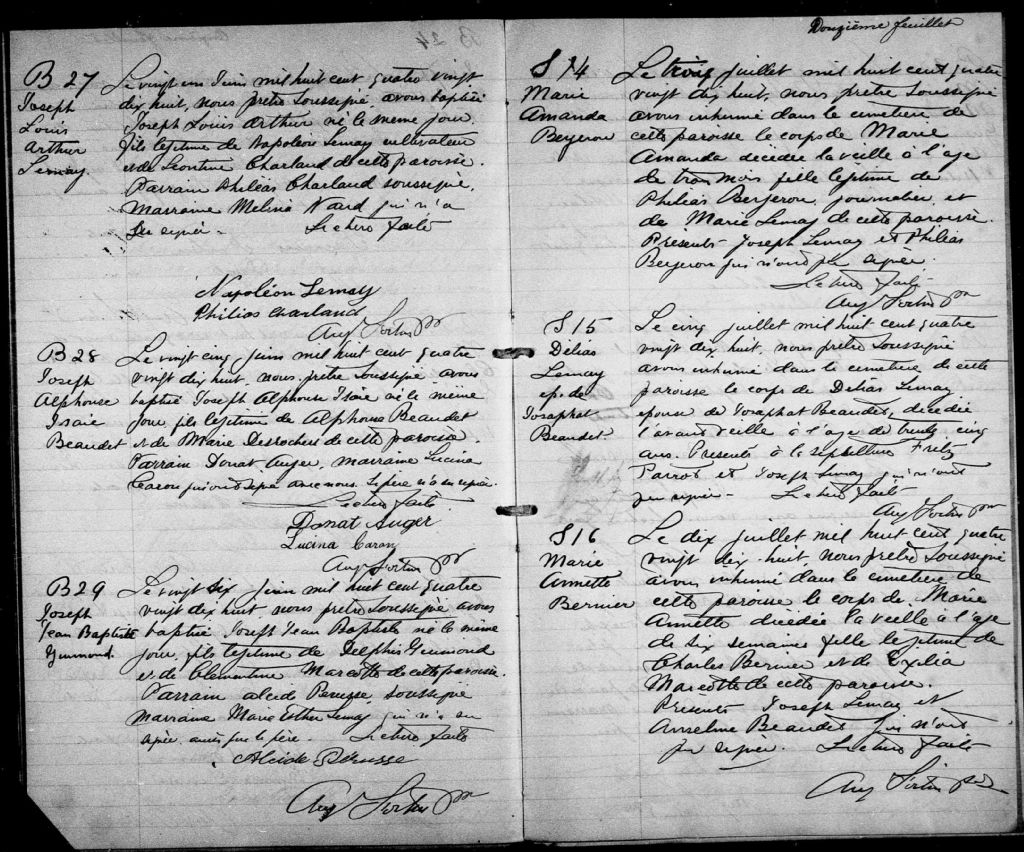 B 27
Joseph
Louis
Arthur
Lemay
Le vingt un Juin mil huit cent quatre vingt
dix huit, nous prêtre soussigné, avons baptisé
Joseph Louis Arthur né le même jour,
fils légitime de Napoléon Lemay cultivateur
et de Léontine Charland de cette paroisse.
Parrain Philéas Charland soussigné,
marraine Melina Naud qui n'a
su signer. Lecture faite
Napoléon Lemay
Philias Charland
Aug
ptr
B 28
Joseph
Alphonse
Isaïe
Beaudet
Le vingt cinq juin mil huit cent quatre
vingt dix huit, nous prêtre soussigné avons
baptisé Joseph Alphonse Isaïe né le même
jour, fils légitime de Alphonse Beaudet
et de Marie Desrochers de cette paroisse.
Parrain Donat Auger, marraine Lucina
Caron qui ont signé avec nous. Le père n'a su signer.
Lecture faite
Donat Auger
Lucina Caron
Aug
ptr
B 29
Joseph
Jean Baptiste
Guimond
Le vingt six juin mil huit cent quatre
vingt dix huit, nous prêtre soussigné avons
baptisé Joseph Jean Baptiste né le même
jour, fils légitime de Delphis Guimond
et de Clémentine Marcotte de cette paroisse.
Parrain Alcide Perusse, soussigné
marraine Marie Esther Lemay, qui n'a su
signer, ainsi que le père. Lecture faite
Alcide Pérusse
Aug
ptr
Douzième feuillet
S 14
Marie
Amanda
Bergeron
Le trois juillet mil huit cent quatre
vingt dix huit, nous prêtre soussigné
avons inhumé dans le cimetière de
cette paroisse le corps de Marie
Amanda décédée la veille à l'age
de trois mois fille légitime de
Philéas Bergeron, journalier, et
de Marie Lemay de cette paroisse.
Présents Joseph Lemay et Philéas
Bergeron qui n'ont pu signer.
Lecture faite
Aug
ptr
S 15
Délias
Lemay
ep. de
Josaphat
Beaudet
Le cinq juillet mil huit cent quatre
vingt dix huit, nous prêtre soussigné
avons inhumé dans le cimetière de cette
paroisse le corps de Delias Lemay
epouse de Josaphat Beaudet, décédée
l'avant veille à l'age de trente cinq
ans. Présents à la sépulture Fritz
Parrot et Joseph Lemay qui n'ont
pu signer. Lecture faite
Aug
ptr
S 16
Marie
Annette
Bernier
Le dix juillet mil huit cent quatre
vingt dix huit, nous prêtre soussigné
avons inhumé dans le cimetière de
cette paroisse le corps de Marie
Annette décédée la veille à l'age
de six semaines fille légitime de
Charles Bernier et de Exilia
Marcotte de cette paroisse.
Présents Joseph Lemay et
Anselme Beaudet qui n'ont
pu signer. Lecture faite
Aug
ptr